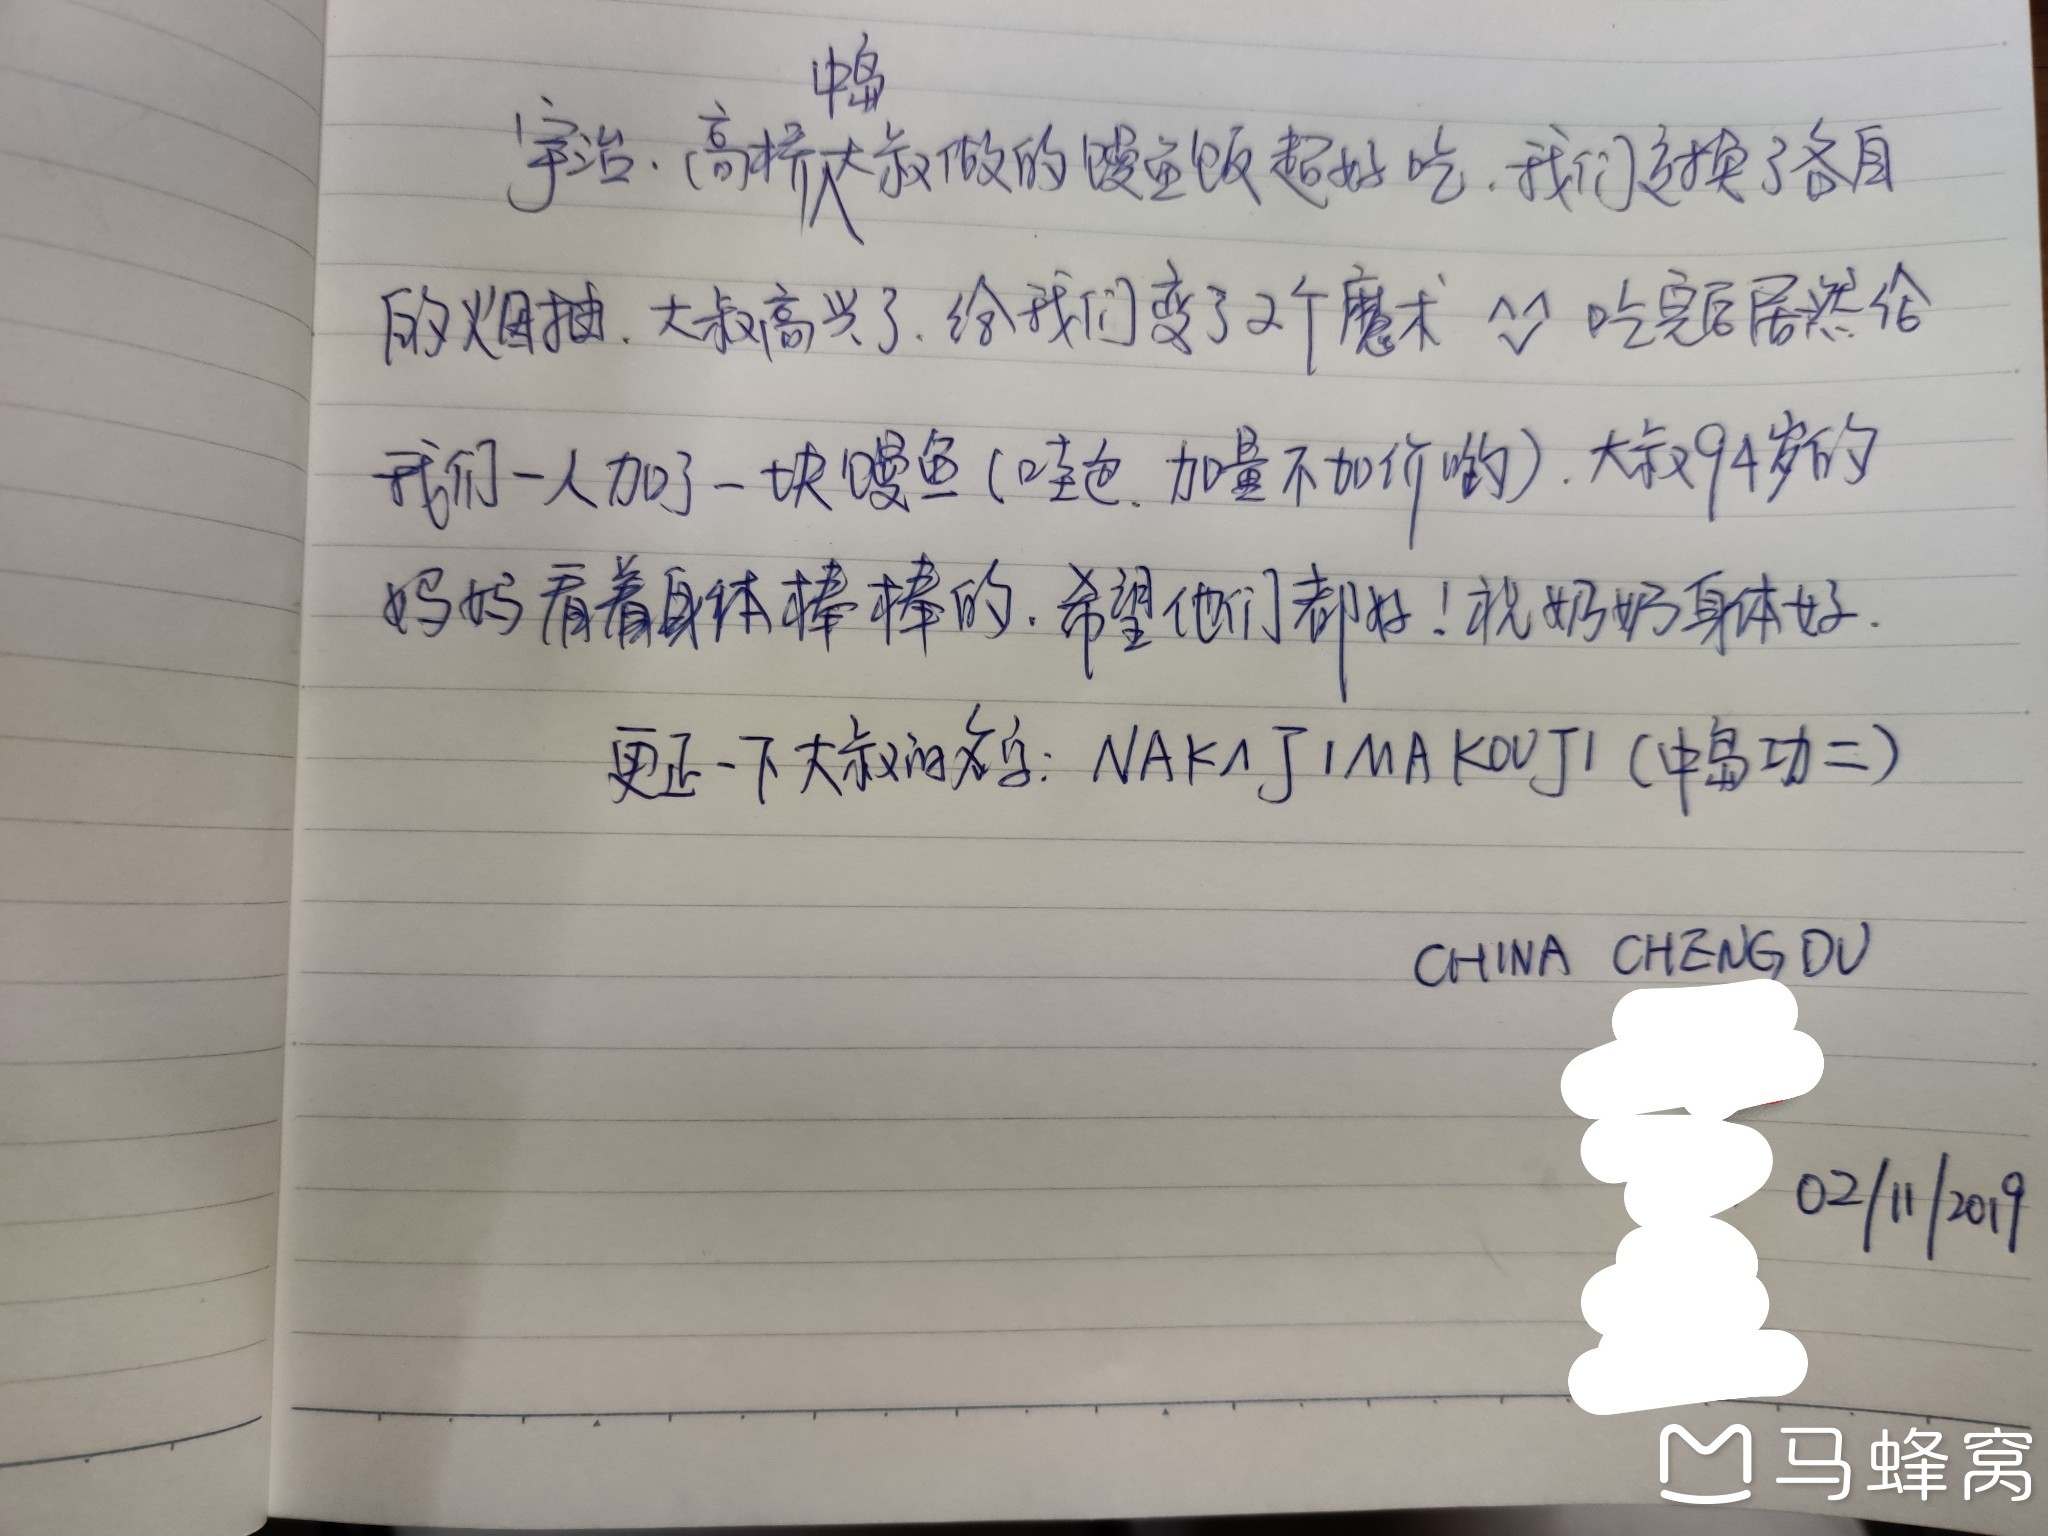 中島
宇治.高桥大叔做的鳗鱼饭超好吃.我们交换了各自
的烟抽.大叔高兴了.给我们变了2个魔术 吃完后居然给
我们一人加了一块鳗鱼(哇包.加量不加价哟).大叔94岁的
妈妈看着身体棒棒的.希望他们都好!祝奶奶身体好.
更正一下大叔的名字: NAKAJIMA KOUJI (中島功二)
CHINA CHENGDU
02/11/2019
马蜂窝